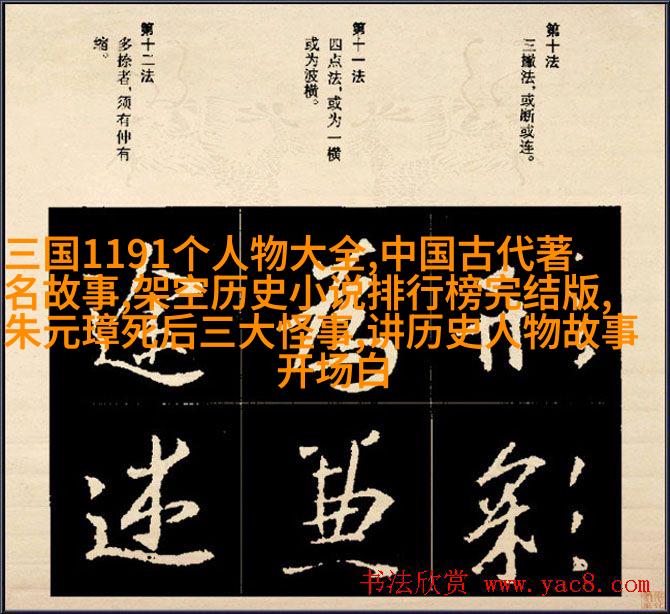 第十法
三撇法，或断或连。
第十一法
四点法，或为一横
或为波横。
第十二法
多捺者，须有伸有
缩。
三国1191个人物大全,中国古代著
名故事,架空历史小说排行榜完结版,
朱元璋死后三大怪事,讲历史人物故事
开场白
形 为 途
彩 典 述
书法欣赏 www.yac8.com